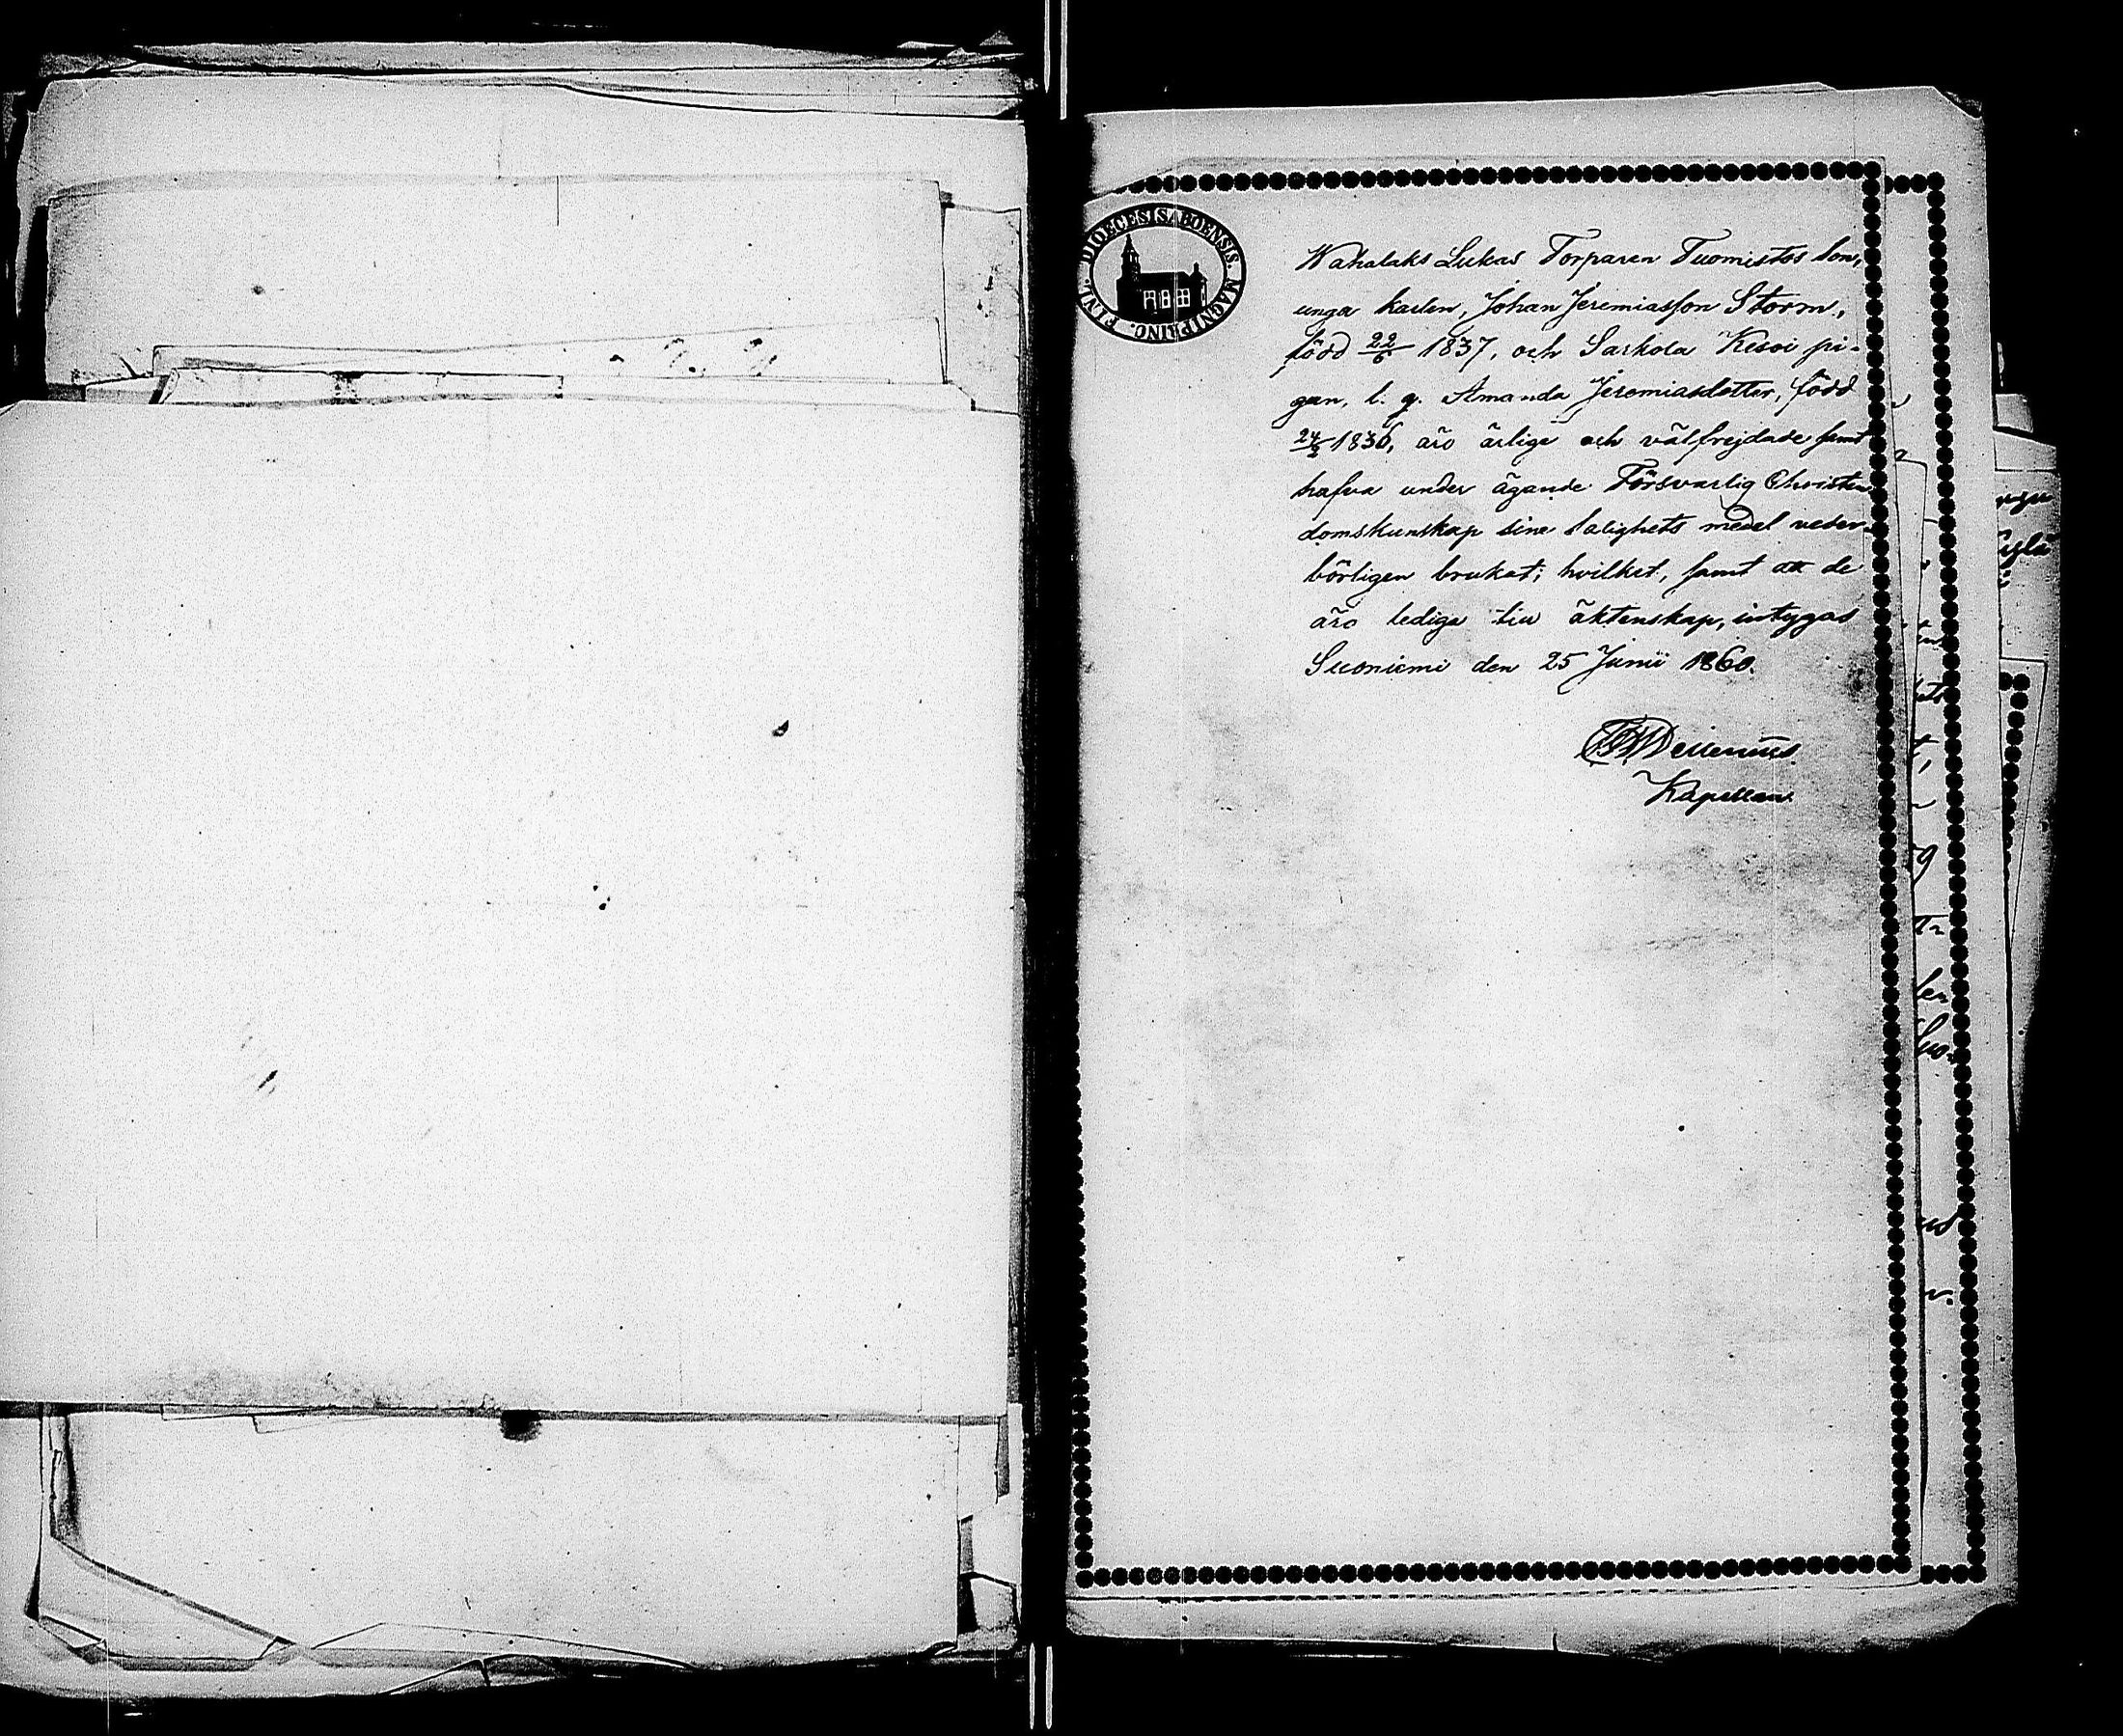 DIOECESIS ABOENSIS. MAGNI PRINC. FINL.
Wahalaks Lukas Torparen Tuomistos son,
unga karlen, Johan Jeremiasson Storm,
född 22/6 1837, och Sarkola Kesoi pi-
gan, l. q. Amanda Jeremiasdotter, född
24/2 1836, äro ärlige och välfrejdade samt
hafva under ägande Försvarlig Christen
domskunskap sine salighets medel veder-
börligen brukat; hvilket, samt att de
äro lediga till äktenskap, intygas
Suoniemi den 25 Junii 1860.
Kapellan.